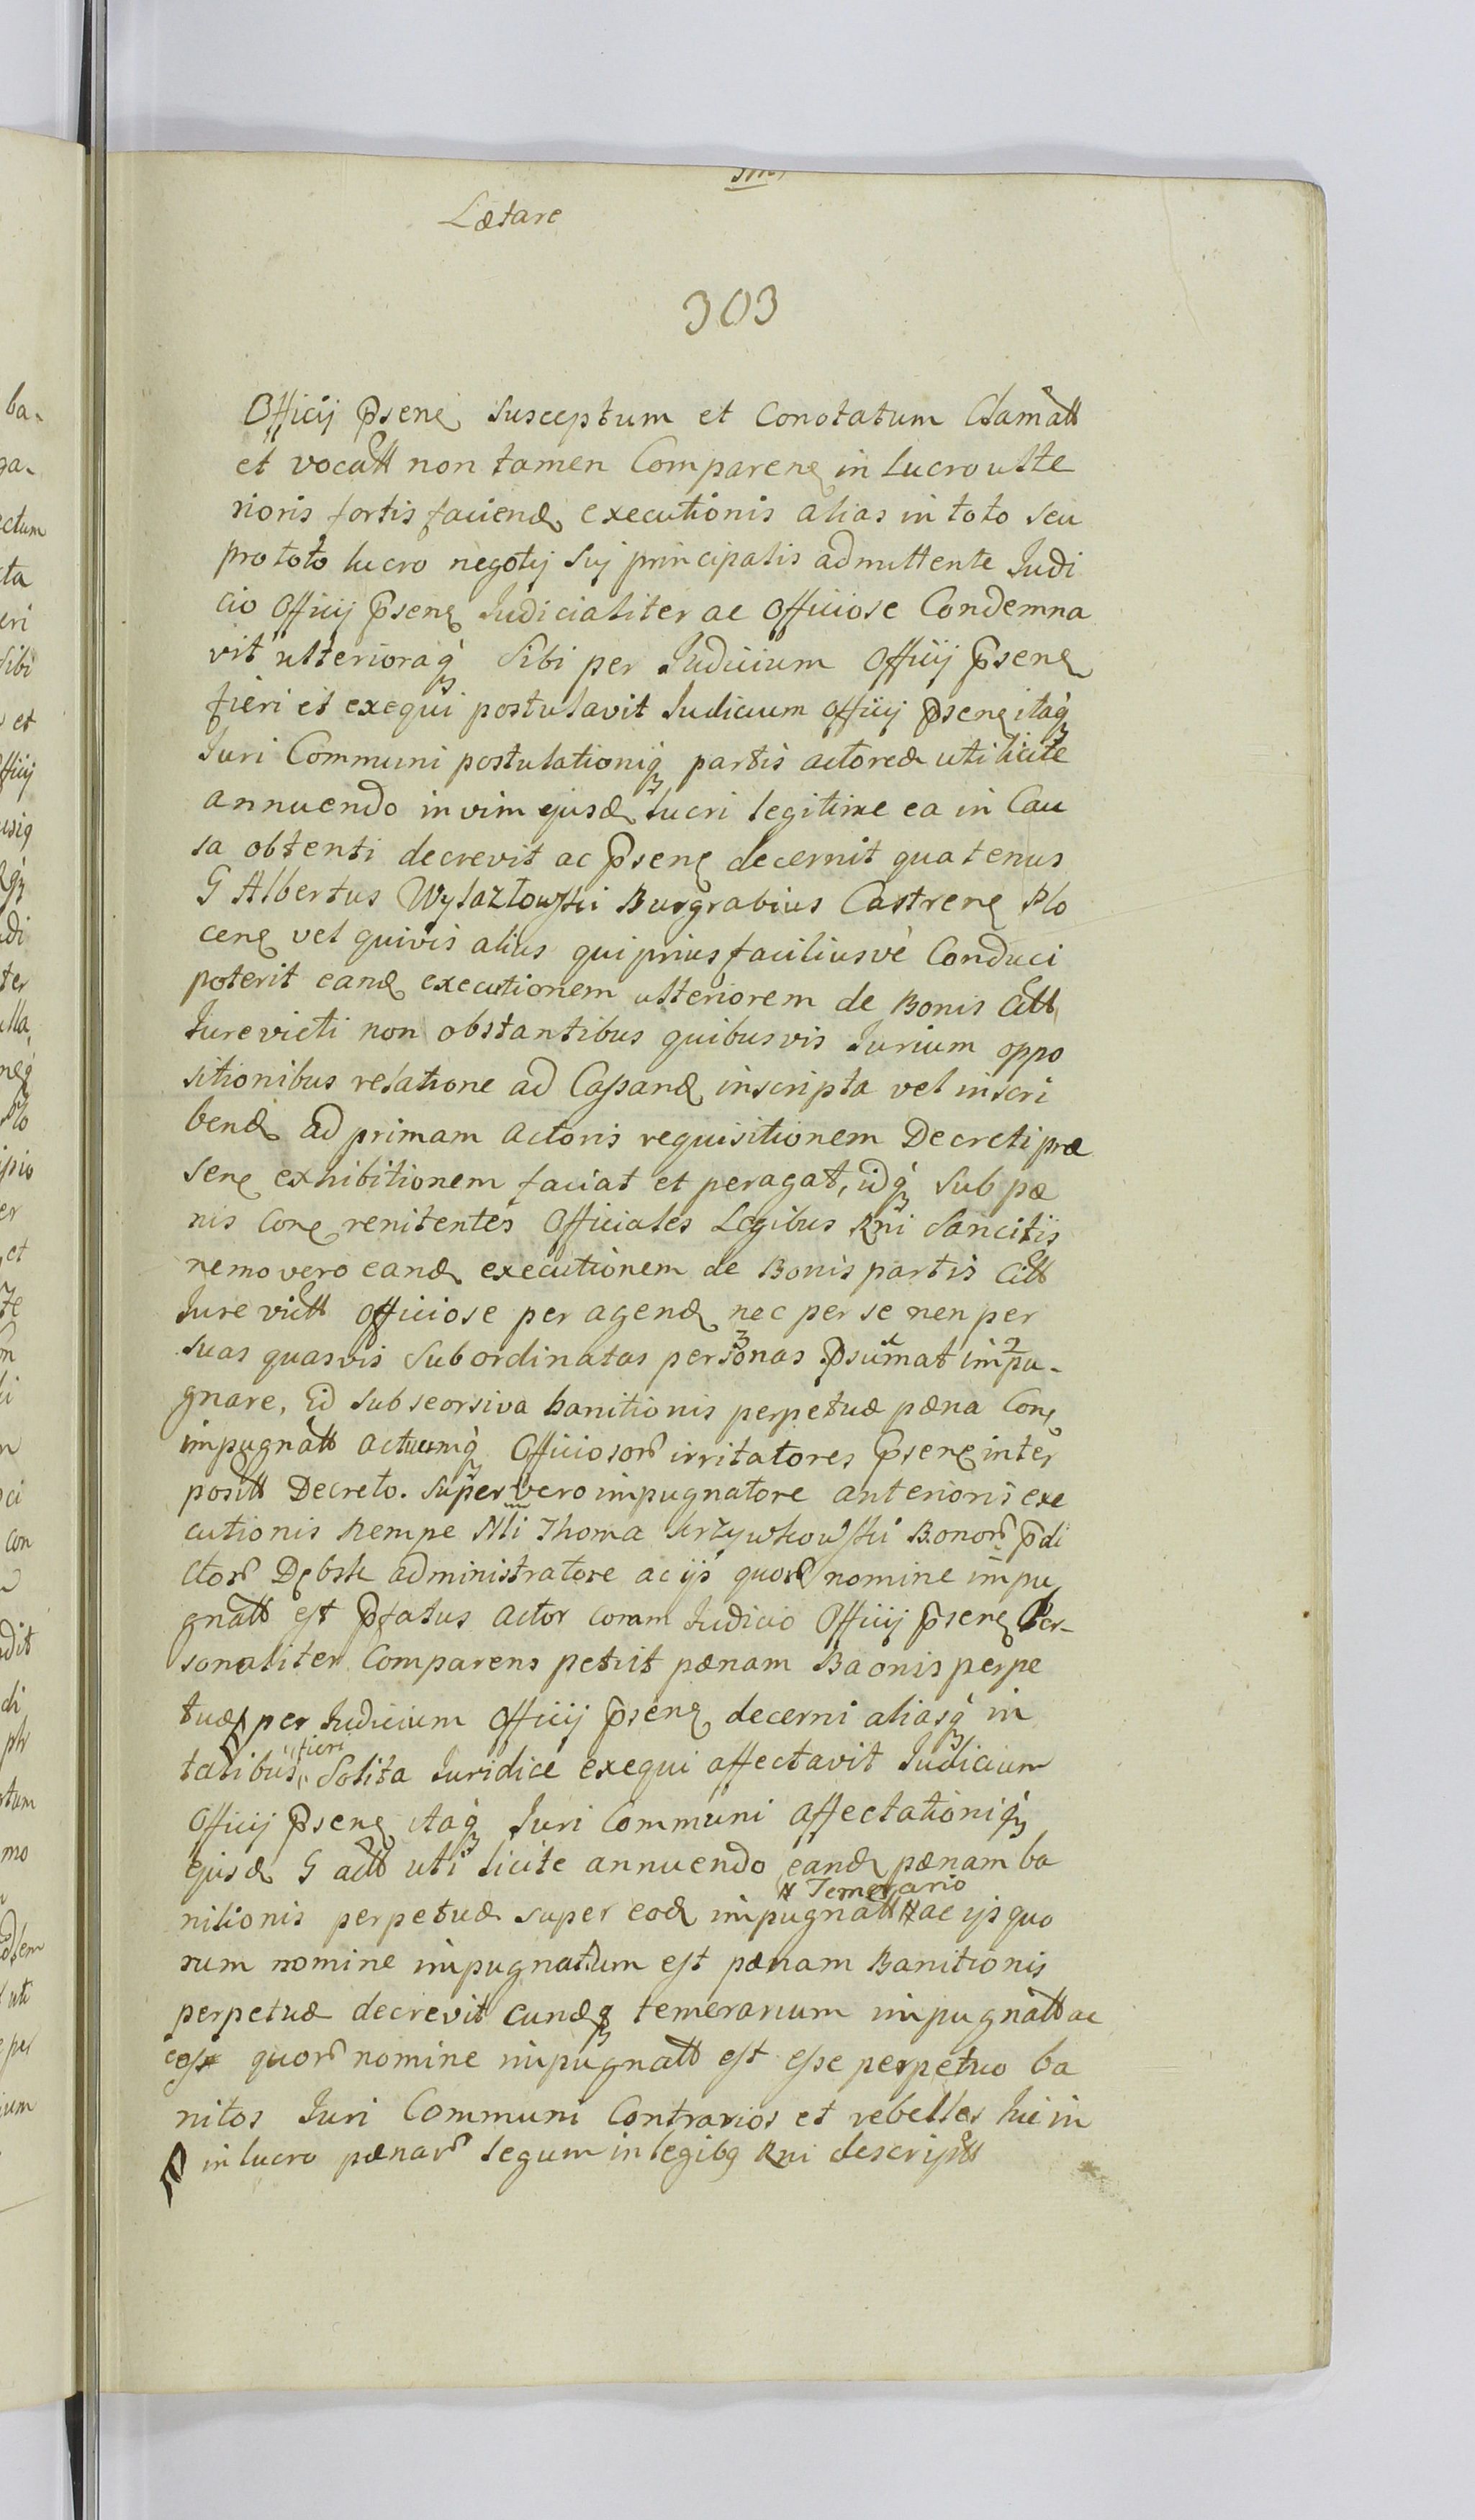 Lætare
303
Officij p̃senę susceptum et conotatum Clamatt
et vocatt non tamen Comparenę in lucro ulte
rioris fortis faciendę executionis alias in toto seu
pro toto lucro negotij sui principalis admittente Judi
cio Officij p̃senę Judicialiter ac Officiose Condemna
vit ulterioraq́ Sibi per Judicium Officij p̃senę
fieri et exequi postulavit Judicium Officij p̃senę itaq́
Juri Communi postulationiq́ partis actoreæ uti licite
annuendo in vim ejusdę lucri legitime ea in Cau
sa obtenti decrevit ac p̃senę decernit quatenus
G Albertus Wylazłowski Burgrabius Castrenę Plo
cenę vel quivis alius qui prius faciliusvè Conduci
poterit eandę executionem ulteriorem de Bonis Citt
Jurevicti non obstantibus quibusvis Jurium oppo
sitionibus relatione ad Cassandę inscripta vel inscri
bendę ad primam Actoris requisitionem Decreti præ
senę exhibitionem faciat et peragat, idq́ sub pæ
nis Conę renitentes Officiales Legibus Rni Sancitis
nemo vero eandę executionem de Bonis partis Citt
Jure victt officiose per agendę nec per se nen per
suas quasvis Subordinatas personas p̃sumat impu-
gnare, Id sub seorsiva banitionis perpetuæ pæna Conę
impugnatt actuumq́ Officiosor̃ irritatores p̃senę inter
positt Decreto. Super vero impugnatore anterioris exe
cutionis nempe Mli Thoma Krzywkowski Bonor̃ p̃di
ctor̃ Dębsk administratore ac ijs quorũ nomine impu
gnatt est p̃fatus Actor coram Judicio Officij p̃senę Per-
sonaliter Comparens petiit pænam Baonis perpe
tuæ per Judicium Officij p̃senę decerni aliasq́ in
talibus fieri Solita Juridice exequi affectavit Judicium
Officij p̃senę itaq́ Juri Communi Affectationiq́
ejusdę G actt uti licite annuendo eandę pænam ba
nitionis perpetuæ super eodę impugnatt # Temerario ac ijs quo
rum nomine impugnatum est pænam Banitionis
perpetuæ decrevit eundęq́ temerarium impugnatt ac
eos quor̃ nomine impugnatt est esse perpetuo ba
nitos Juri Communi Contrarios et rebelles hic in
in lucro pænar̃ legum in legibq Rni descriptt